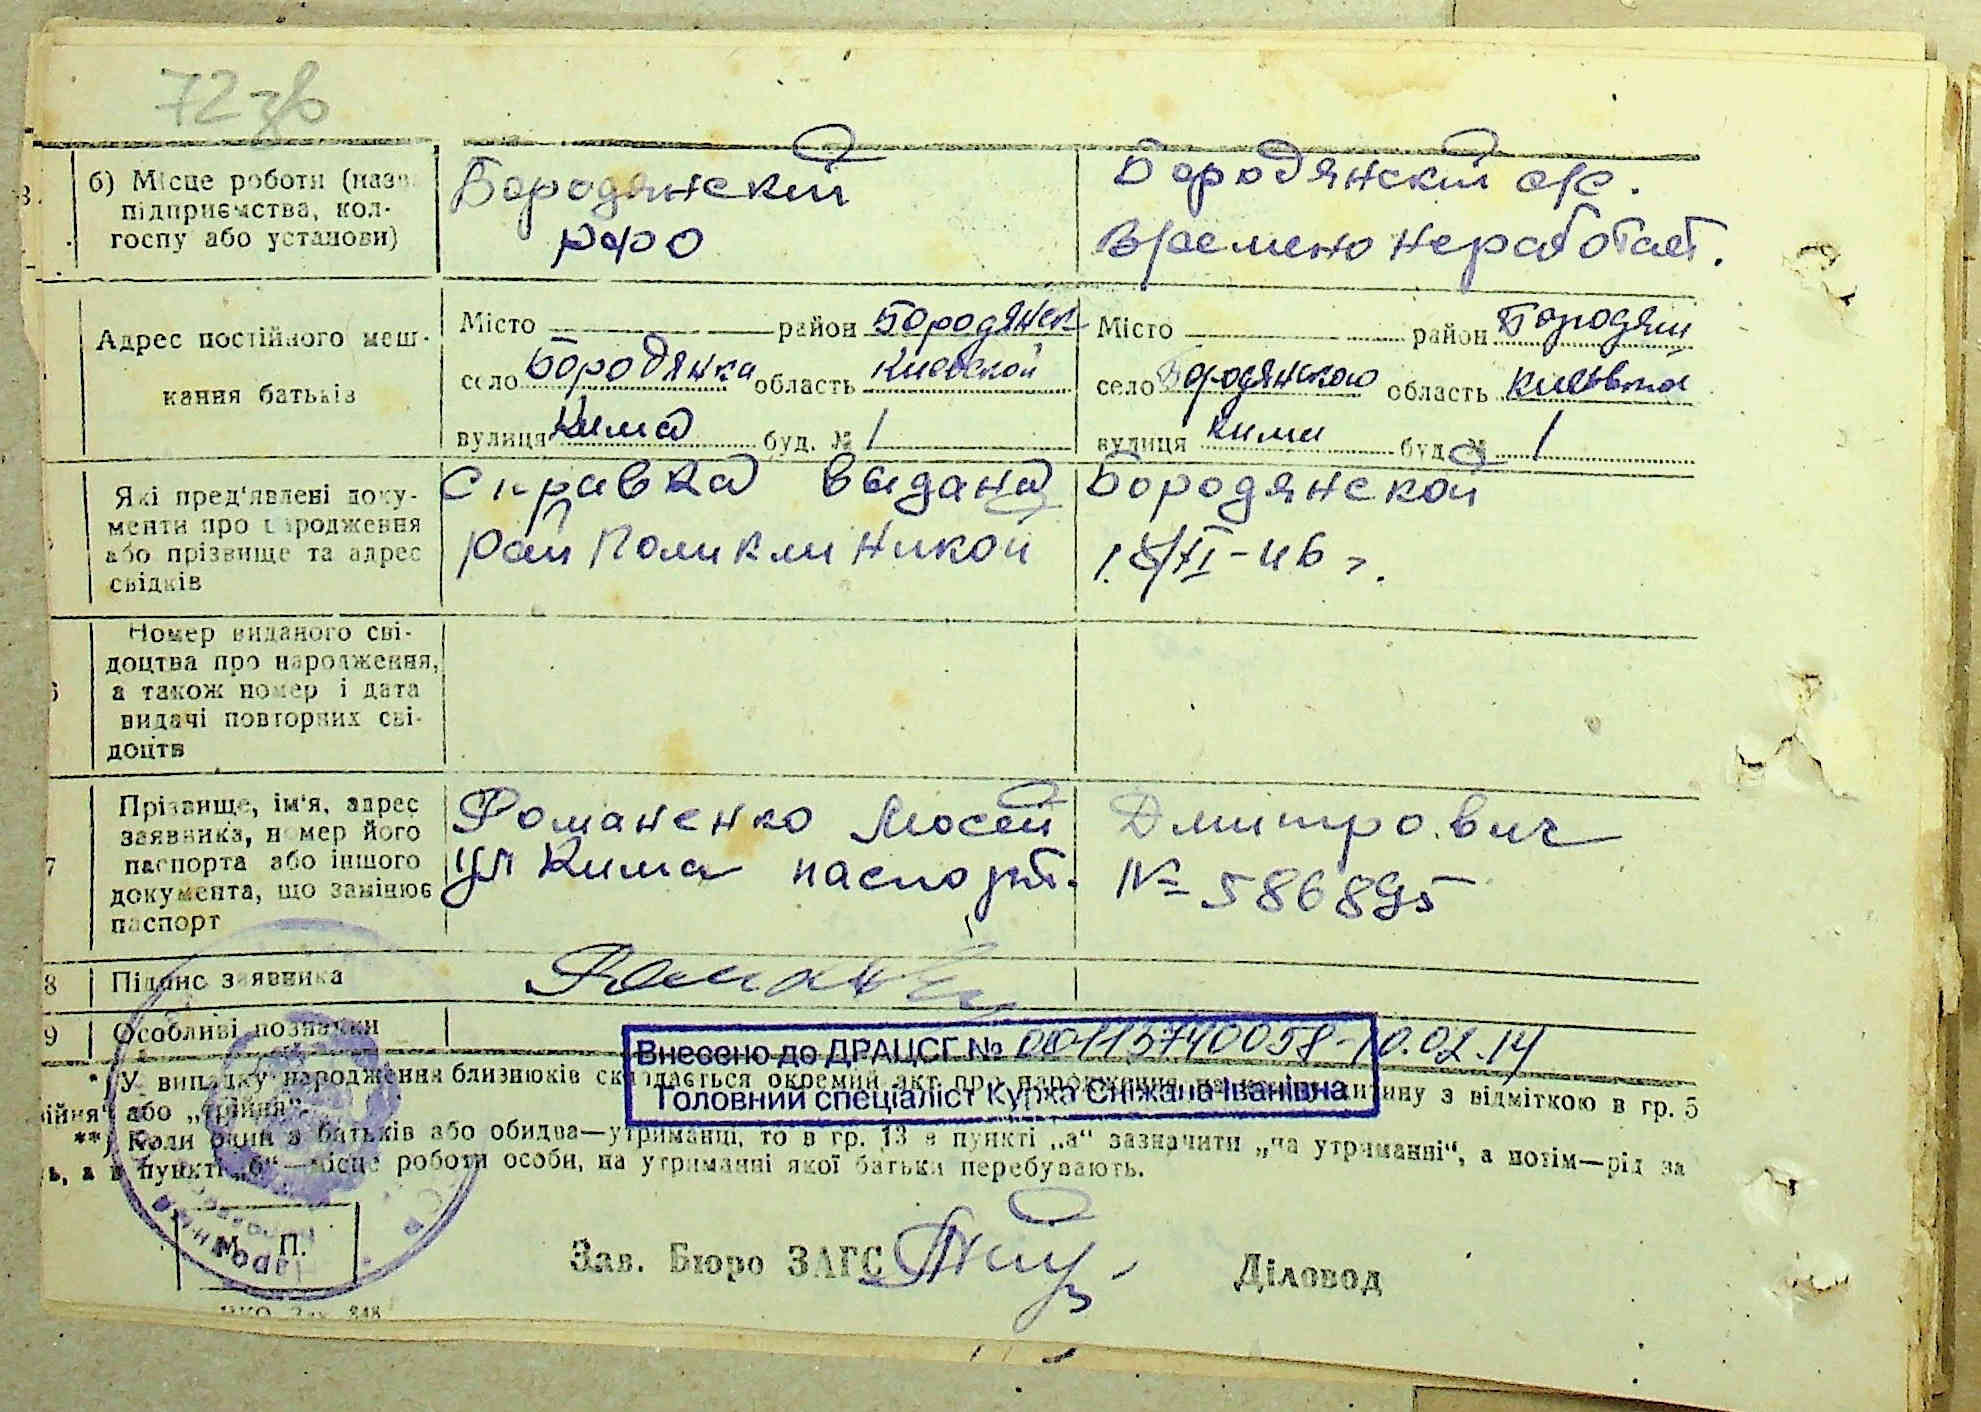 72 зв
б) Місце роботи (назв.
підприємства, кол-
госпу або установи)
Бородянский
рфо
Бородянский
времено неработает.
Адрес постійного меш-
кання батьків
Місто район Бородянск
село Бородянка область Киевской
вулиця Кима буд. № 1
Місто район Бородян
село область
вулиця Кими буд № 1
Які пред'явлені доку-
менти про народження
або прізвище та адрес
свідків
Справка выдана Бородянской
рай поликлиникой 18/XI-46 г.
6
Номер виданого сві-
доцтва про народження,
а також номер і дата
видачі повторних сві-
доцтв
7
Прізвище, ім'я, адрес
заявника, номер його
паспорта або іншого
документа, що замінює
паспорт
Романенко Мосей Дмитрович
ул Кима паспорт. № 586895
8 Підпис заявника
9 Особливі позначки
Внесено до ДРАЦСГ № 00113740058-10.02.14
Головний спеціаліст Курха Сніжана Іванівна
*) У випадку народження близнюків складається окремий акт про народження на кожну дитину з відміткою в гр. 5
ійня" або „трійня".
**) Коли один з батьків або обидва—утриманці, то в гр. 13 в пункті „а" зазначити „на утриманні", а потім—рід за
ь, а в пункті „б"—місце роботи особи, на утриманні якої батьки перебувають.
М. П.
Зав. Бюро ЗАГС
Діловод